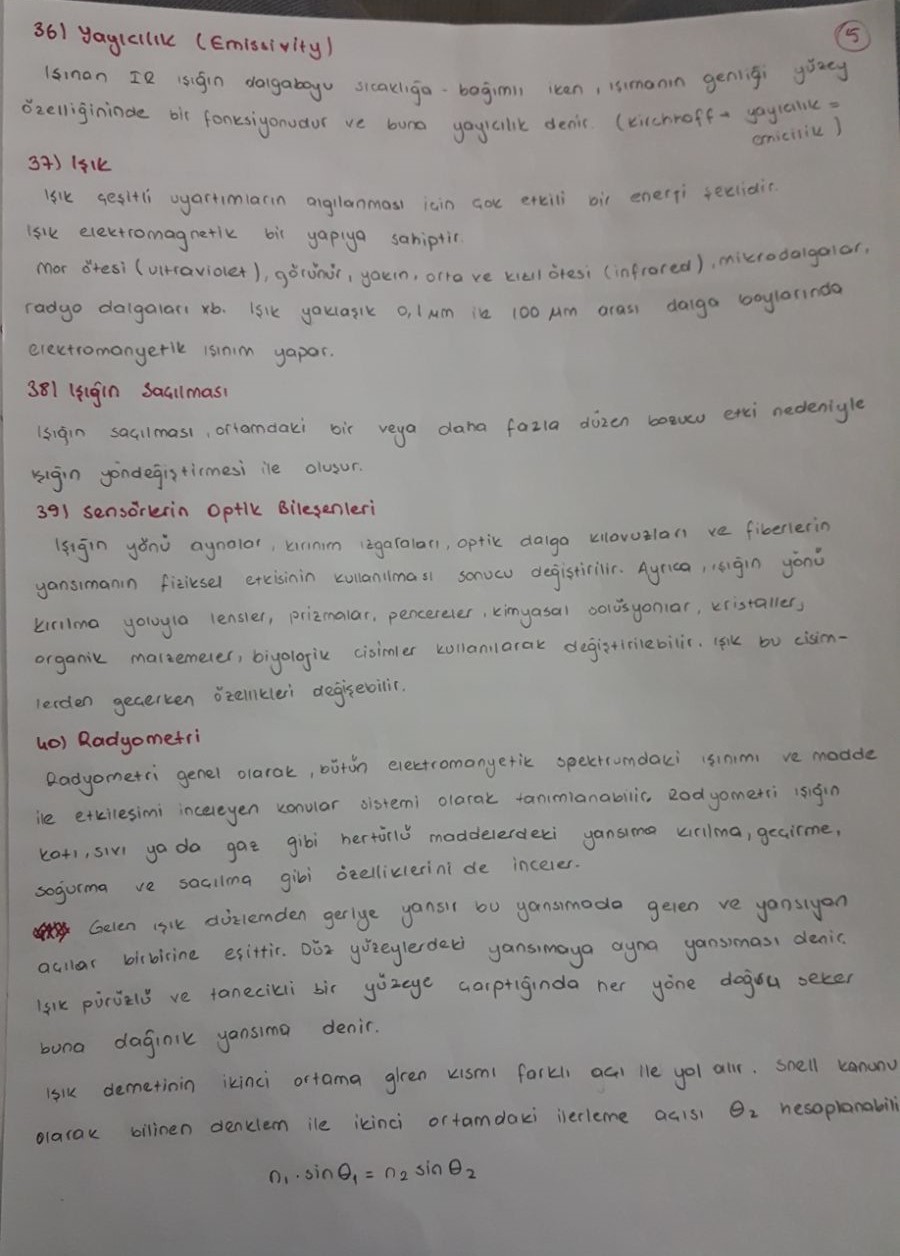 36) Yayıcılık (Emissivity)
5
Işınan IR ışığın dalgaboyu sıcaklığa-bağımlı iken, ışımanın genliği yüzey
özelliğininde bir fonksiyonudur ve buna yayıcılık denir. (Kirchhoff → yayıcılık =
emicilik)
37) Işık
Işık çeşitli uyartımların algılanması için çok etkili bir enerji şeklidir.
Işık elektromagnetik bir yapıya sahiptir.
Mor ötesi (ultraviolet), görünür, yakın, orta ve kızıl ötesi (infrared), mikrodalgalar,
radyo dalgaları vb. Işık yaklaşık 0,1 µm ile 100 µm arası dalga boylarında
elektromanyetik ışınım yapar.
38) Işığın Saçılması
Işığın saçılması, ortamdaki bir veya daha fazla düzen bozucu etki nedeniyle
ışığın yöndeğiştirmesi ile oluşur.
39) Sensörlerin Optik Bileşenleri
Işığın yönü aynalar, kırınım ızgaraları, optik dalga kılavuzları ve fiberlerin
yansımanın fiziksel etkisinin kullanılması sonucu değiştirilir. Ayrıca, ışığın yönü
kırılma yoluyla lensler, prizmalar, pencereler, kimyasal solüsyonlar, kristaller,
organik malzemeler, biyolojik cisimler kullanılarak değiştirilebilir. Işık bu cisim-
lerden geçerken özellikleri değişebilir.
40) Radyometri
Radyometri genel olarak, bütün elektromanyetik spektrumdaki ışınımı ve madde
ile etkileşimi inceleyen konular sistemi olarak tanımlanabilir. Radyometri ışığın
katı, sıvı ya da gaz gibi hertürlü maddelerdeki yansıma kırılma, geçirme,
soğurma ve saçılma gibi özelliklerini de inceler.
Gelen ışık düzlemden geriye yansır bu yansımada gelen ve yansıyan
açılar birbirine eşittir. Düz yüzeylerdeki yansımaya ayna yansıması denir.
Işık pürüzlü ve tanecikli bir yüzeye çarptığında her yöne doğru seker
buna dağınık yansıma denir.
Işık demetinin ikinci ortama giren kısmı farklı açı ile yol alır. Snell kanunu
olarak bilinen denklem ile ikinci ortamdaki ilerleme açısı θ2 hesaplanabili
n₁ . sinθ₁ = n₂ sinθ₂